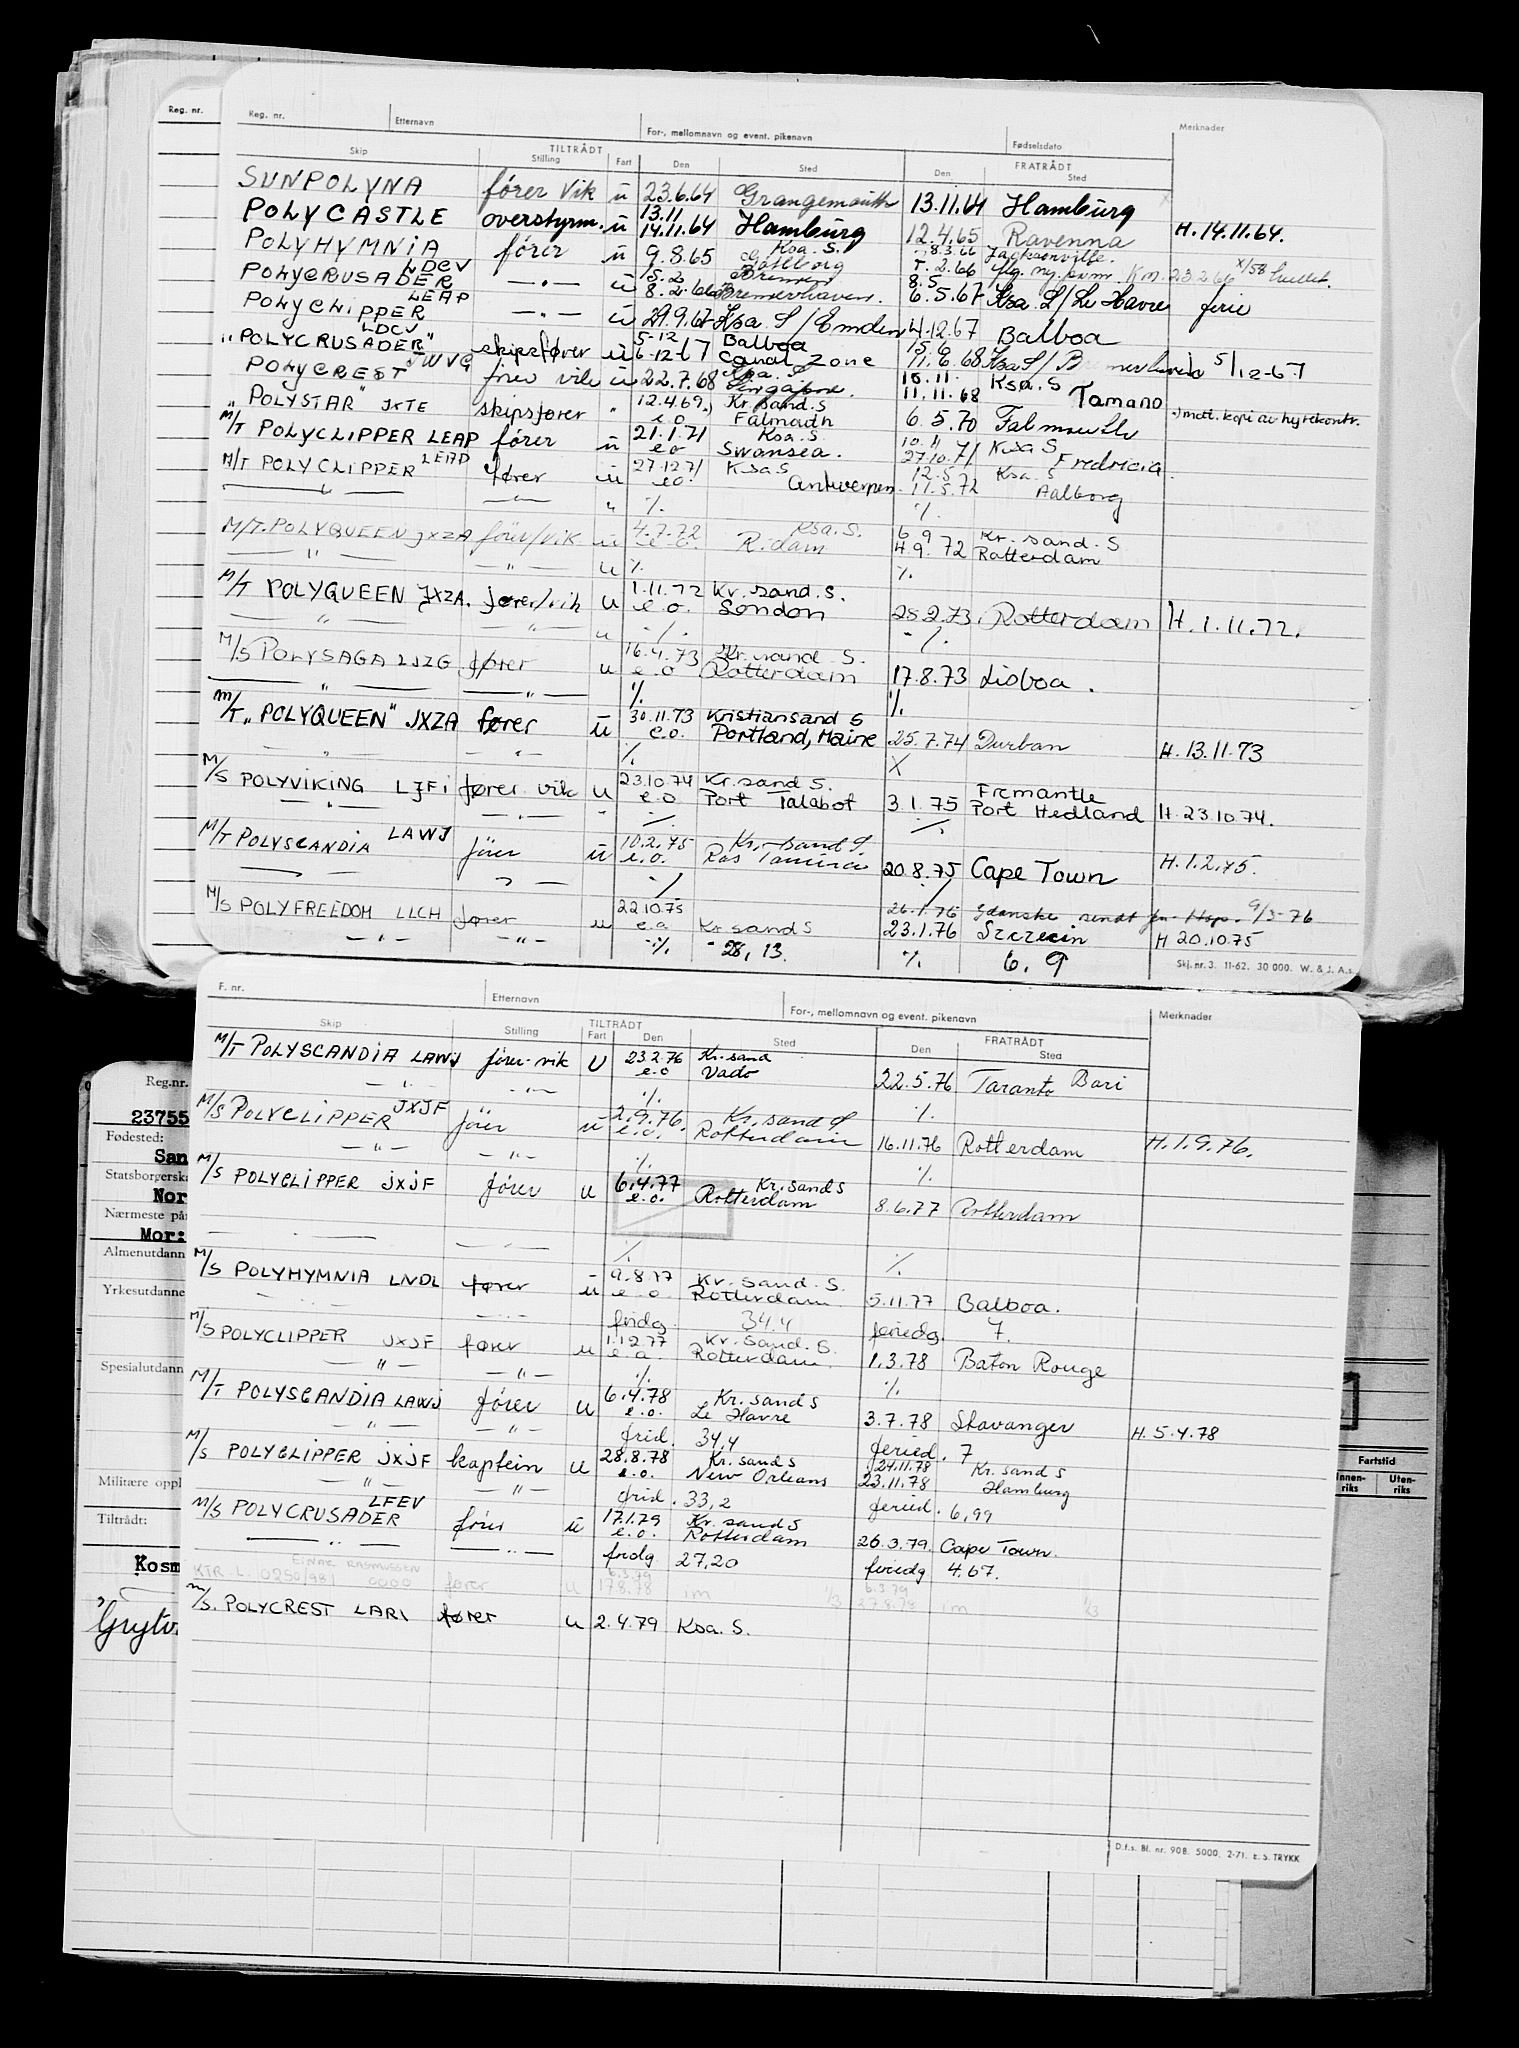 Reg. nr.
Reg. nr. Etternavn For-, mellomnavn og event. pikenavn Fødselsdato Merknader
Skip TILTRÅDT Stilling Fart Den Sted Den FRATRÅDT Sted
SUNPOLYNA fører vik u 23.6.64 Grangemouth 13.11.64 Hamburg
POLYCASTLE overstyrm. u 13.11 14.11.64 Hamburg 12.4.65 Ravenna H. 14.11.64.
POLYHYMNIA fører u 9.8.65 Ksa. S. Gøteborg 8.3.66 Jacksonville.
POLYCRUSADER LDCV —"— u 15.2 8.2.66 Bremen Bremerhaven. 8.5 6.5.67 Ksa. S/Le Havre ferie
POLYCLIPPER LEAP —"— u 29.9.67 Ksa. S/Emden 4.12.67 Balboa
"POLYCRUSADER" LDCV skipsfører u 5-12 6-12-67 Balboa Canal Zone 15.6 11.6.68 Ksa S/ 5/12-67
POLYCREST JWVG fører vik u 22.7.68 Ksa. S Singapore. 10.11. 11.11.68 Ksa. S Tomano
"POLYSTAR" JXTE skipsfører " 12.4.69.) e.o. Kr. sand. S Falmouth 6.5.70 Falmouth .) mott. kopi av hyrekontr.
M/T POLYCLIPPER LEAP fører u 21.1.71 e.o Ksa. S. Swansea. 10.11 27.10.71 Ksa S Fredricia
M/T POLYCLIPPER LEAP fører u 27.12.71 e.o. Ksa S Antwerpen. 12.5 11.5.72 Ksa. S Aalborg
—"— —"— " ./. ./.
M/T. POLYQUEEN JXZA fører/vik u 4.7.72 e.o. Ksa. S. R.dam 6.9 4.9.72 Kr. sand. S Rotterdam
—"— —"— u ./. ./.
M/T POLYQUEEN JXZA. fører/vik u 1.11.72 e.o. Kr. sand. S. London 28.2.73. Rotterdam H. 1.11.72.
—"— —"— u ./. ./.
M/S POLYSAGA LJZG fører u 16.4.73 e.o Kr. sand S. Rotterdam 17.8.73 Lisboa.
—"— —"— ./. ./.
M/T "POLYQUEEN" JXZA fører u 30.11.73 e.o. Kristiansand S Portland, Maine 25.7.74 Durban H. 13.11.73
—"— —"— ./. X
M/S POLYVIKING LJFI fører vik u 23.10.74 e.o Kr. sand S. Port Talabot 3.1.75 Fremantle Port Hedland H. 23.10.74.
—"— —"— - ./. ./.
M/T POLYSCANDIA LAWJ fører u 10.2.75 e.o. Kr. sand S. Ras Tanura 20.8.75 Cape Town H. 1.2.75.
—"— —"— ./. ./.
M/S POLYFREEDOM LLCH fører u 22.10.75 e.o Kr sand S 26.1.76 23.1.76 Gdanske sendt 9/3-76 Szczecin H 20.10.75
—"— —"— ./. 28,13. ./. 6,9
Skj. nr. 3. 11-62. 30 000. W. & J. A.s.
F. nr. Etternavn For-, mellomnavn og event. pikenavn Merknader
Skip Stilling TILTRÅDT Fart Den Sted Den FRATRÅDT Sted
M/T POLYSCANDIA LAWJ fører-vik U 23.2.76 e.o Kr. sand Vado 22.5.76 Taranto Bari
—"— —"— ./. ./.
M/S POLYCLIPPER JXJF fører u 2.9.76. e.o. Kr. sand S Rotterdam 16.11.76 Rotterdam H. 1.9.76.
—"— —"— ./. ./.
M/S POLYCLIPPER JXJF fører u 6.4.77 e.o. Kr. sand S Rotterdam 8.6.77 Rotterdam
—"— —"— ./. ./.
M/S POLYHYMNIA LNDL fører u 9.8.77 e.o. Kr. sand. S. Rotterdam 5.11.77 Balboa.
—"— —"— fridg. 34.4 feriedg. 7.
M/S POLYCLIPPER JXJF fører u 1.12.77 e.o. Kr. sand. S. Rotterdam. 1.3.78 Baton Rouge
—"— —"— ./. ./.
M/T POLYSCANDIA LAWJ fører u 6.4.78 e.o. Kr. sand S Le Havre 3.7.78 Stavanger H. 5.4.78
—"— —"— frid. 34,4 feried. 7
M/S POLYCLIPPER JXJF kaptein u 28.8.78 e.o. Kr. sand S New Orleans 24.11.78 23.11.78 Kr. sand S Hamburg
—"— —"— frid. 33,2 feried. 6,99
M/S POLYCRUSADER LFEV fører u 17.1.79 e.o. Kr. sand S Rotterdam 26.3.79. Cape Town.
—"— —"— fridg 27,20 feriedg 4.67.
EINAR RASMUSSEN
KTR. L. 0250/981 0000 fører u 6.3.79 17.8.78 im 1/3 6.3.79 27.8.78 im 1/3
M/S. POLYCREST LARI fører u 2.4.79 Ksa. S.
D.f.s. Bl. nr. 908. 5000. 2-71. E. S. TRYKK
Reg.nr.
23755
Fødested:
San
Statsborgerska
Nor
Nærmeste på
Mor:
Almenutdann
Yrkesutdanne
Spesialutdann
Militære oppl
Tiltrådt:
Kosm
Grytv.
Fartstid
Innen-riks Uten-riks